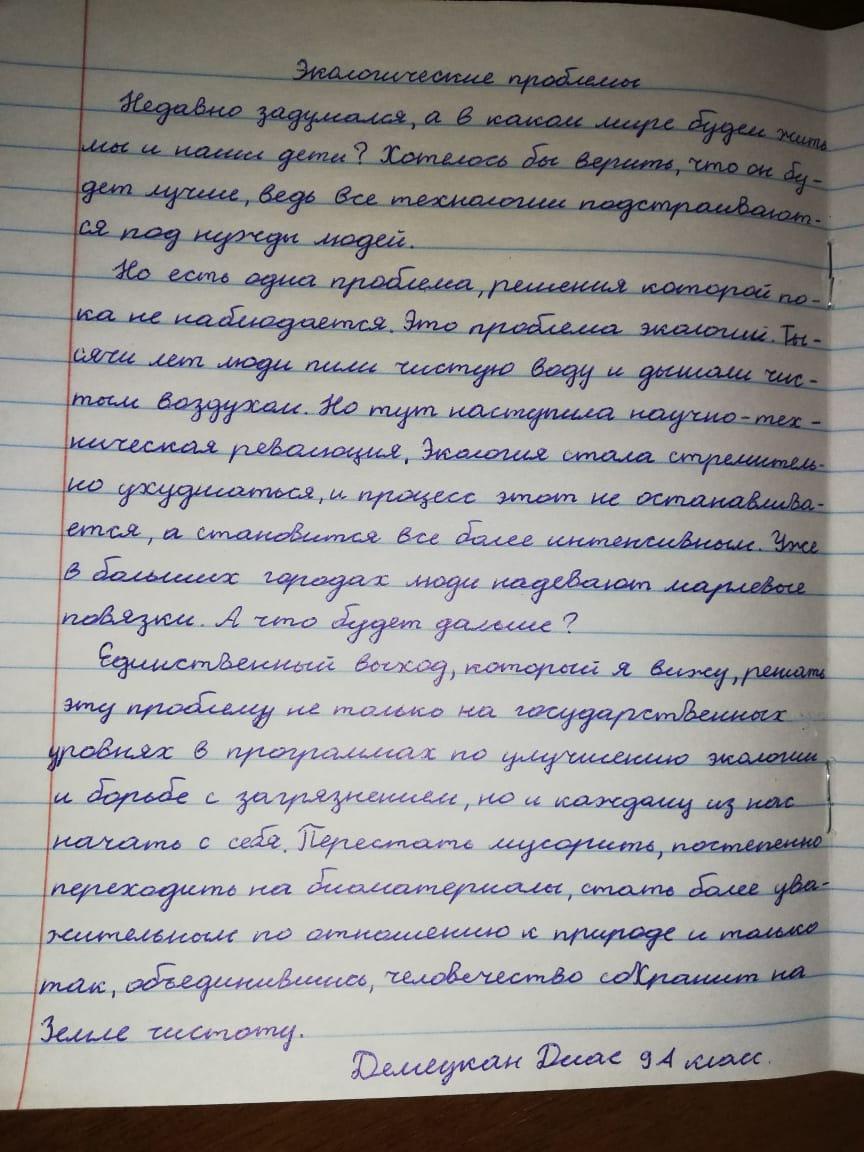 Экологические проблемы
Недавно задумался, а в каком мире будем жить
мы и наши дети? Хотелось бы верить, что он бу-
дет лучше, ведь все технологии подстраивают-
ся под нужды людей.
Но есть одна проблема, решения которой по-
ка не наблюдается. Это проблема экологии. Ты-
сячи лет люди пили чистую воду и дышали чис-
тым воздухом. Но тут наступила научно-тех-
ническая революция. Экология стала стремитель-
но ухудшаться, и процесс этот не останавлива-
ется, а становится все более интенсивным. Уже
в больших городах люди надевают марлевые
повязки. А что будет дальше?
Единственный выход, который я вижу, решать
эту проблему не только на государственных
уровнях в программах по улучшению экологии
и борьбе с загрязнением, но и каждому из нас
начать с себя. Перестать мусорить, постепенно
переходить на биоматериалы, стать более ува-
жительным по отношению к природе и только
так, объединившись, человечество сохранит на
Земле чистоту.
Демецкан Диас 9А класс.